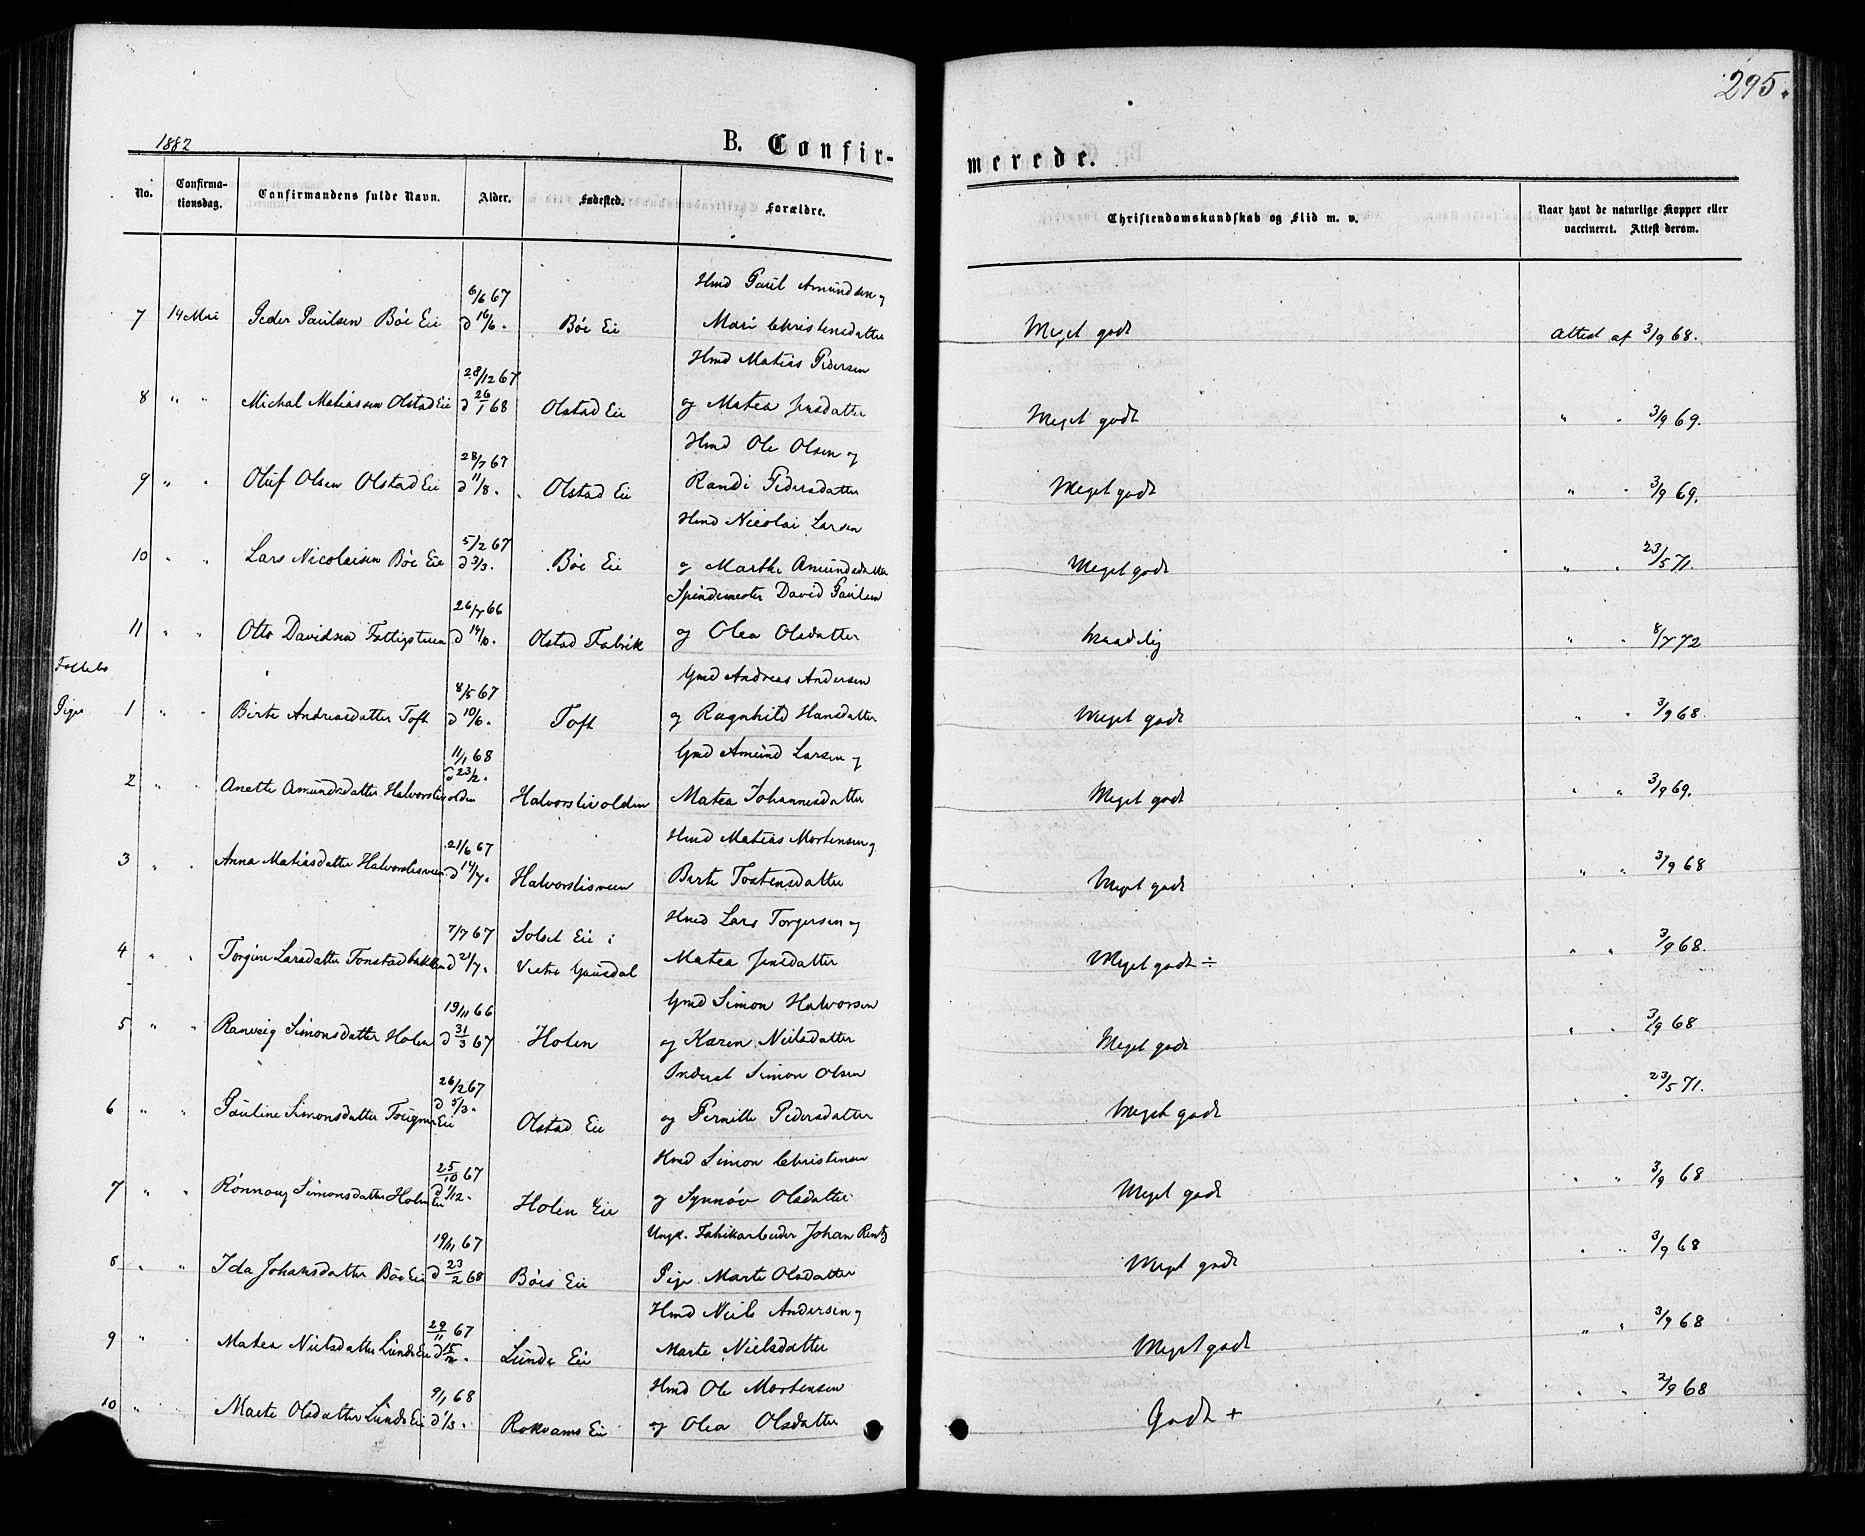 295.
1882
B. Confir-
merede.
No. Confirma-tionsdag. Confirmandens fulde Navn. Alder. Fødested. Forældre. Christendomskundskab og Flid m. v. Naar havt de naturlige Kopper eller vaccineret. Attest derom.
6/6 67 Hmd Paul Amundsen og
7 14 Mai Peder Paulsen Bøe Eie d 16/6. Bøe Eie Mari Christensdatter Meget godt Attest af 3/9 68.
28/12 67 Hmd Matias Pedersen
8 " " Michal Matiassen Olstad Eie d 26/1 68 Olstad Eie og Matea Jensdatter Meget godt " " 3/9 69.
28/7 67 Hmd Ole Olsen og
9 " " Oluf Olsen Olstad Eie d 11/8. Olstad Eie Randi Pedersdatter Meget godt " " 3/9 69.
5/2 67 Hmd Nicolai Larsen
10 " " Lars Nicolaisen Bøe Eie d 3/3. Bøe Eie og Marthe Amundsdatter Meget godt " " 23/5 71.
26/7 66 Spindemester David Paulsen
11 " " Otto Davidsen d 14/10. Olstad Fabrik og Olea Olsdatter Maadelig " " 8/7 72
Follebo
8/5 67 Gmd Andreas Andersen
Piger 1 " " Birte Andreasdatter Toft d 10/6. Toft og Ragnhild Hansdatter Meget godt " " 3/9 68.
11/1 68 Gmd Amund Larsen og
d 23/2.
2 " " Anette Amundsdatter Halvorslivolden Halvorslivolden Matea Johannesdatter Meget godt " " 3/9 69.
21/6 67 Hmd Matias Mortensen og
3 " " Anna Matiasdatter Halvorslisveen d 14/7. Halvorslisveen Berte Tostensdatter Meget godt " " 3/9 68
7/7 67 Solset Eie i Hmd Lars Torgersen og
4 " " Torgine Larsdatter Fonstadbakken d 21/7. Vestre Gausdal Matea Jensdatter Meget godt ÷ " " 3/9 68.
19/11 66 Gmd Simon Halvorsen
5 " " Ranveig Simonsdatter Holen d 31/3 67 Holen og Karen Nielsdatter Meget godt " " 3/9 68
26/2 67 Inderst Simon Olsen
6 " " Pauline Simonsdatter Eie d 5/3. Olstad Eie og Pernille Pedersdatter Meget godt " " 23/5 71.
25/10 67 Hmd Simon Christensen
7 " " Rønnoug Simonsdatter Holen Eie d 1/12. Holen Eie og Synnøv Olsdatter Meget godt " " 3/9 68
19/11 67 Ungk. Fabrikarbeider Johan Rentz
8 " " Ida Johansdatter Bøe Eie d 23/2 68 Bøes Eie Pige Marte Olsdatter Meget godt " " 3/9 68
29/11 67 Hmd Niels Andersen og
9 " " Matea Nielsdatter Lunde Eie d 15/2. Lunde Eie Marte Nielsdatter Meget godt " " 3/9 68
9/1 68 Hmd Ole Mortensen
10 " " Marte Olsdatter Lunde Eie d 1/3. Rokvams Eie og Olea Olsdatter Godt + " " 2/9 68